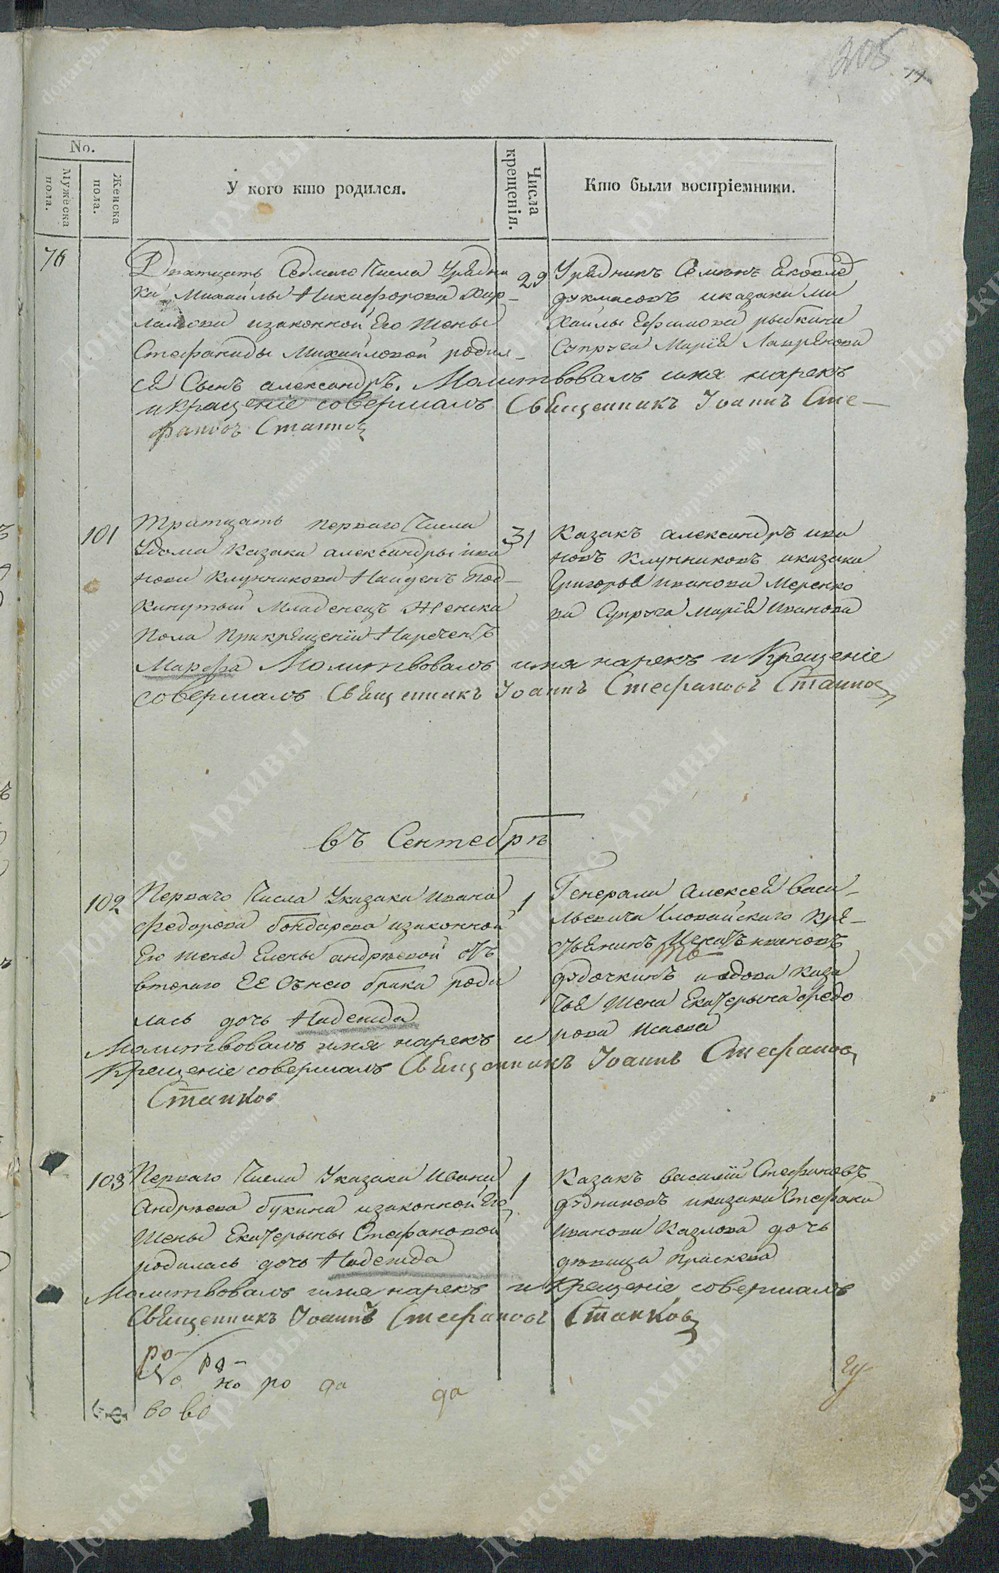 205
No.
Мужеска пола.
Женска пола.
У кого кто родился.
Числа крещенія.
Кто были воспріемники.
76
Дватцать Седмаго Числа Урядни
ка Михайлы Никифорова Хар-
ламова изаконной Его Жены
Стефаниды Михайловой родил-
ся Сынъ александръ. Молитвовалъ имя нарекъ
икрещеніе совершалъ Священникъ Іоаннъ Сте-
фановъ Станковъ
29
Урядникъ Семенъ Яковле
иказака ми
хайлы Ефимова рыбкина
Супруга Марія Лаврѣнова
101
Тритцать перваго Числа
Удома Казака александры ива
нова Ключникова Найденъ под-
кинутый Младенецъ Женска
пола прикрещеніи Нареченъ
Марѳа Молитвовалъ имя нарекъ и Крещеніе
совершалъ Священникъ Іоаннъ Стефановъ Станковъ
31
Казакъ александръ ива
новъ Ключниковъ иказака
Григорья иванова Меренко
ва Супруга Марія иванова
въ Сентебрѣ
102
Перваго Числа Указака ивана
Федорова бондарева изаконной
Его жены Елены андрѣевой отъ
втораго ЕЕ Снею брака роди
лась дочь Надежда
Молитвовалъ имя нарекъ и
Крещеніе совершалъ Священникъ Іоаннъ Стефановъ
Станковъ
1
Генерала алексея васи-
льевича иловайскаго кре-
стьянинъ ивановъ
дудочкинъ и вдова каза
чья жена Екатерына Федо
рова Исаева
103
Перваго Числа Указака Ивана
Андрѣева букина изаконной Его
Жены Екатерыны Стефановой
родилась дочь Надежда
Молитвовалъ имя нарекъ и Крещеніе совершалъ
Священникъ Іоаннъ Стефановъ Станковъ
1
Казакъ василій Стефановъ
иказака Стефана
иванова Казлова дочь
девица Праскева
ро-
ро-
но ро да да
во во
Донские Архивы
донскиеархивы.рф
donarch.ru